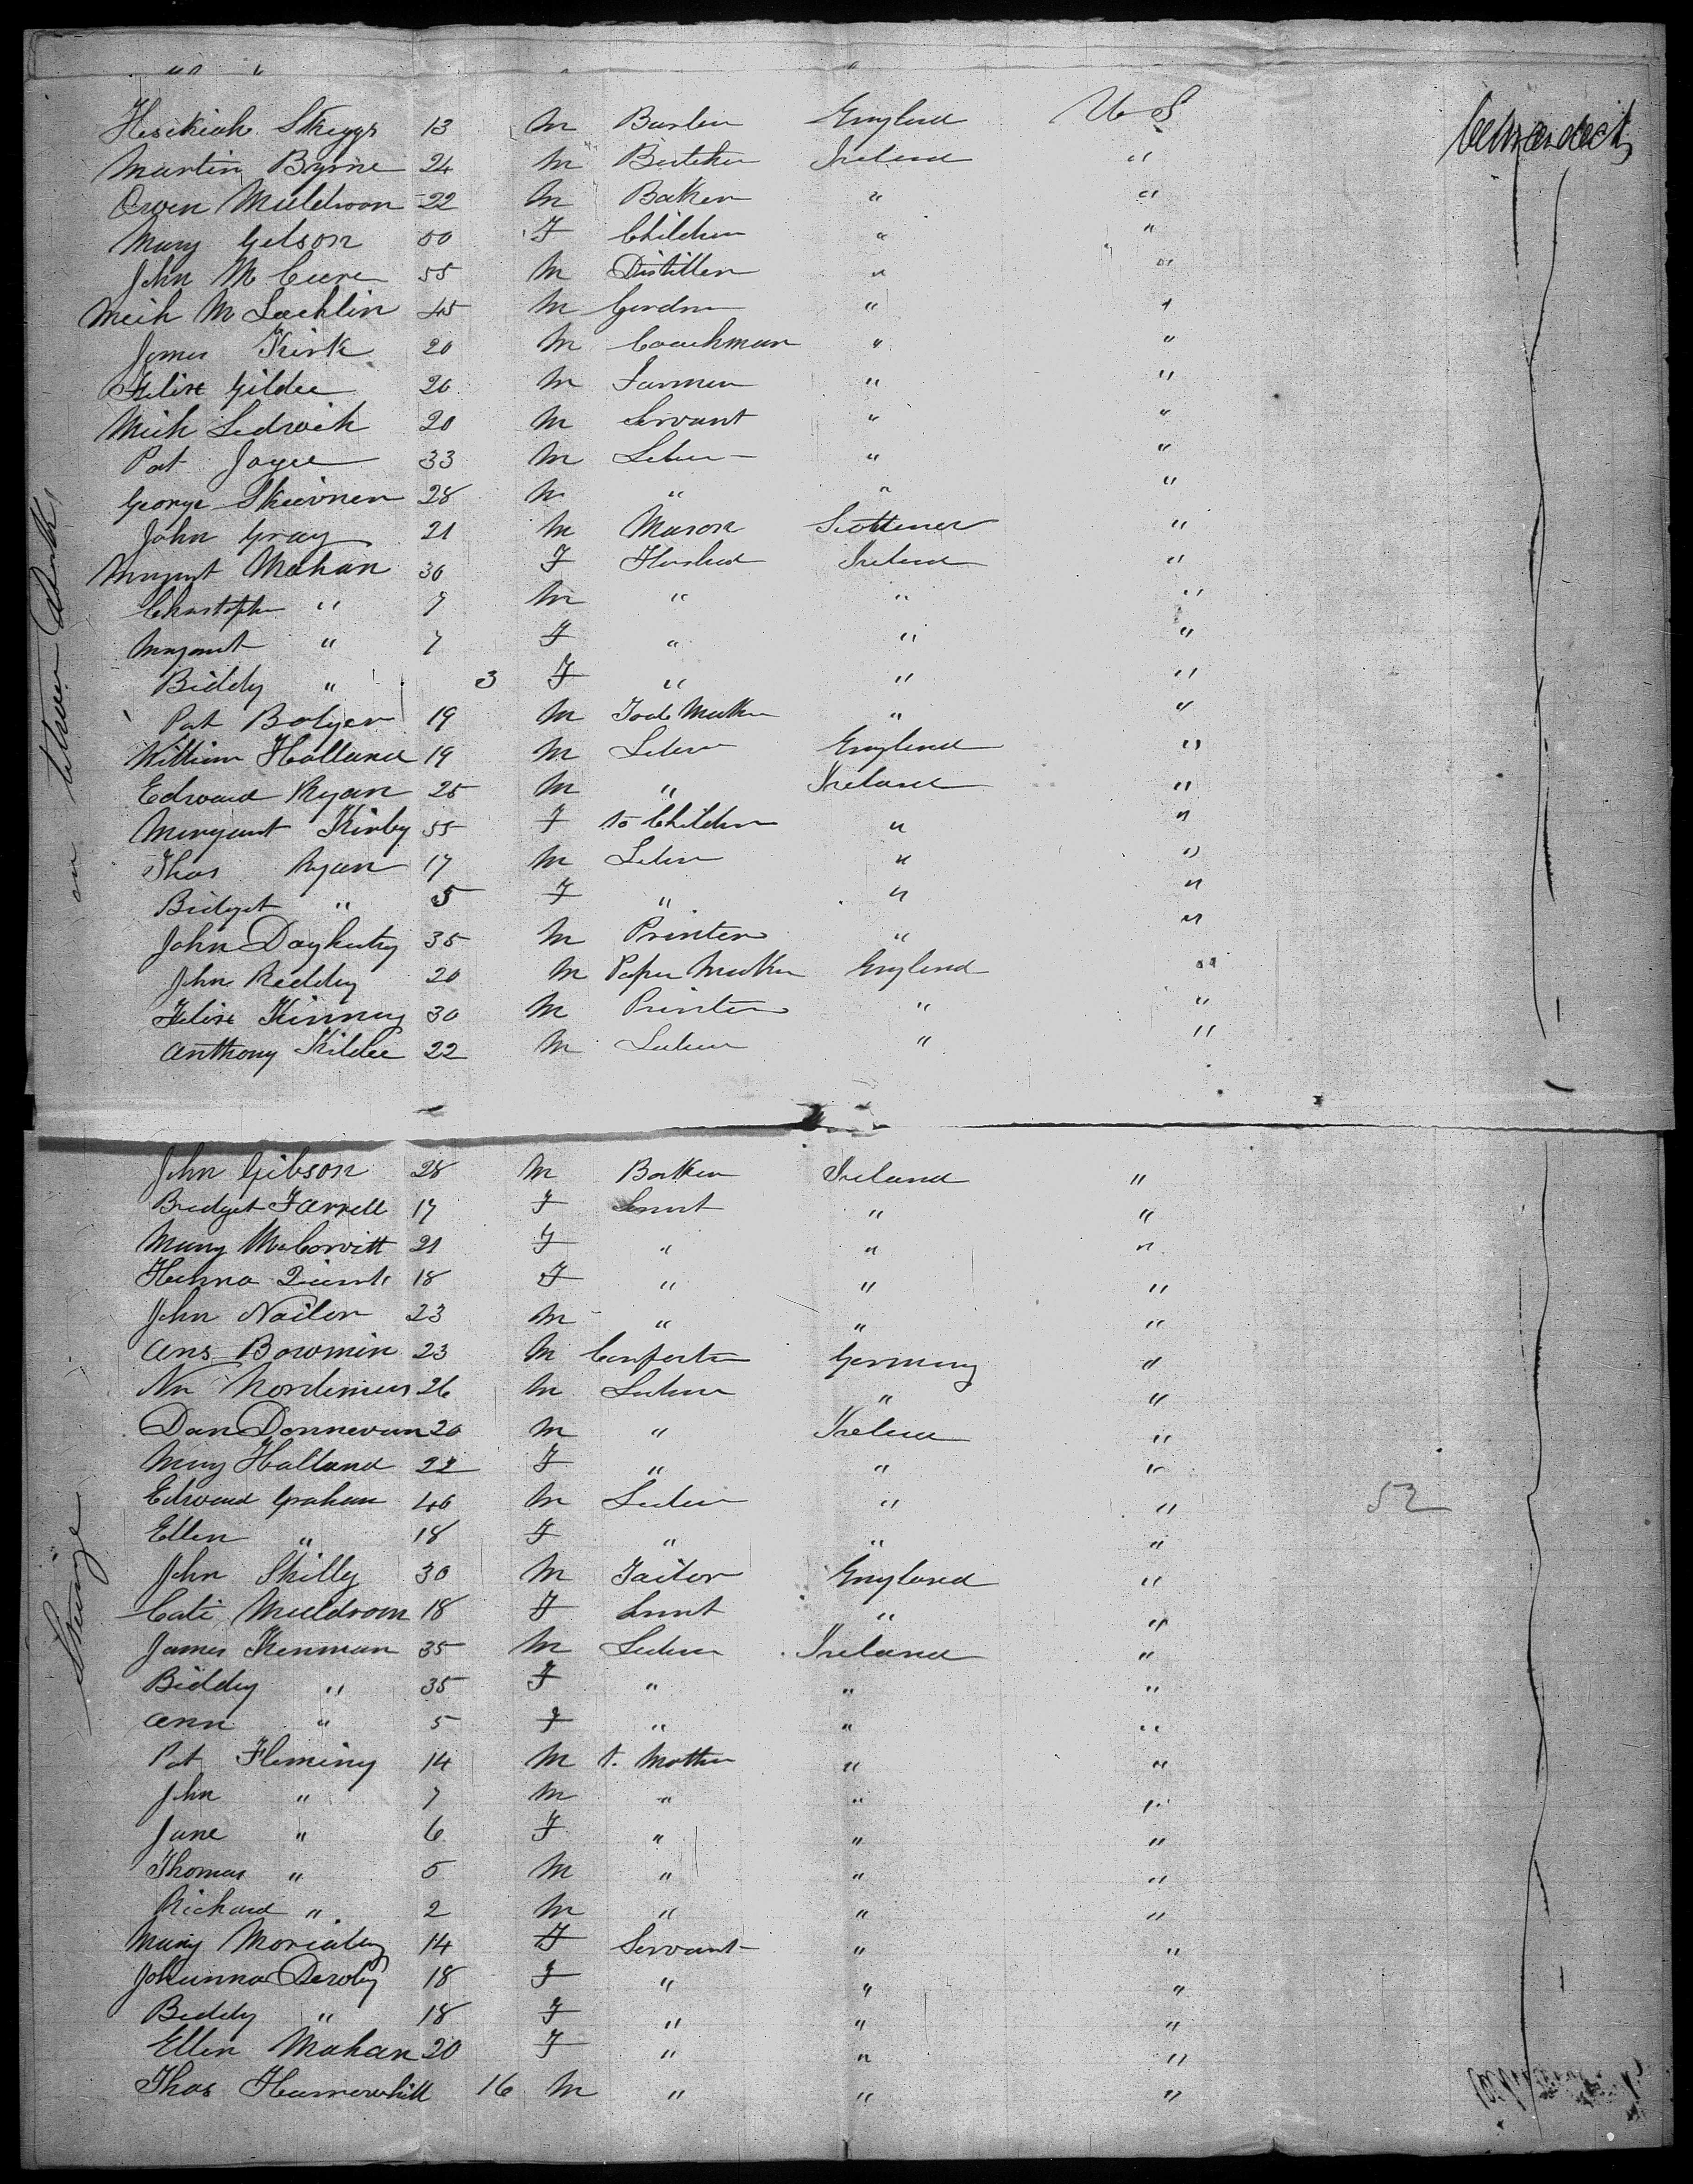 " " "
Hesikiah Skeggs 13 M England U S
Martin Byrne 24 M Butcher Ireland "
Owen Muldoon 22 M Baker " "
Mary Gelson 50 F Children " "
John McCure 55 M Distiller " "
Mich McLachlin 45 M Gardnr " "
James Kirk 20 M Coachman " "
Felix Gildee 20 M Farmer " "
Mich Ledwich 20 M Servant " "
Pat Joyce 33 M Labur " "
George 28 M " " "
John Gray 21 M Mason "
Margaret Mahan 30 F Husbed Ireland "
Christoph " 9 M " " "
Margaret " 7 F " " "
Biddy " 3 F " " "
Pat Bolger 19 M Maker " "
William Holland 19 M Labur England "
Edward Ryan 25 M " Ireland "
Margaret Kirby 55 F to Children " "
Thos Ryan 17 M Labur " "
Bridget " 5 F " " "
John Dayhuty 35 M Printer " "
John Reddy 20 M Paper Maker England "
Felix Kinney 30 M Printer " "
Anthony Kildee 22 M Labur " "
John Gibson 28 M Ireland "
Bridget Farrell 17 F Servnt " "
Mary McCorvitt 21 F " " "
Hanna 18 F " " "
John Nailor 23 M " " "
Ans Bowmin 23 M Germany "
Nordimus 26 M Labur " "
Dan Donnevan 20 M " Ireland "
Mary Holland 22 F " " "
Edward Graham 40 M Labur " " 52
Ellen " 18 F " " "
John Skilly 30 M Tailor England "
Cate Muldroon 18 F Servnt " "
James Kenman 35 M Labur Ireland "
Biddy " 35 F " " "
Ann " 5 F " " "
Pat Fleming 14 M t. Mother " "
John " 7 M " " "
Jane " 6 F " " "
Thomas " 5 M " " "
Richard " 2 M " " "
Mary Moriaty 14 F Servant " "
Johanna Derby 18 F " " "
Biddy " 18 F " " "
Ellen Mahan 20 F " " "
Thos 16 M " " "